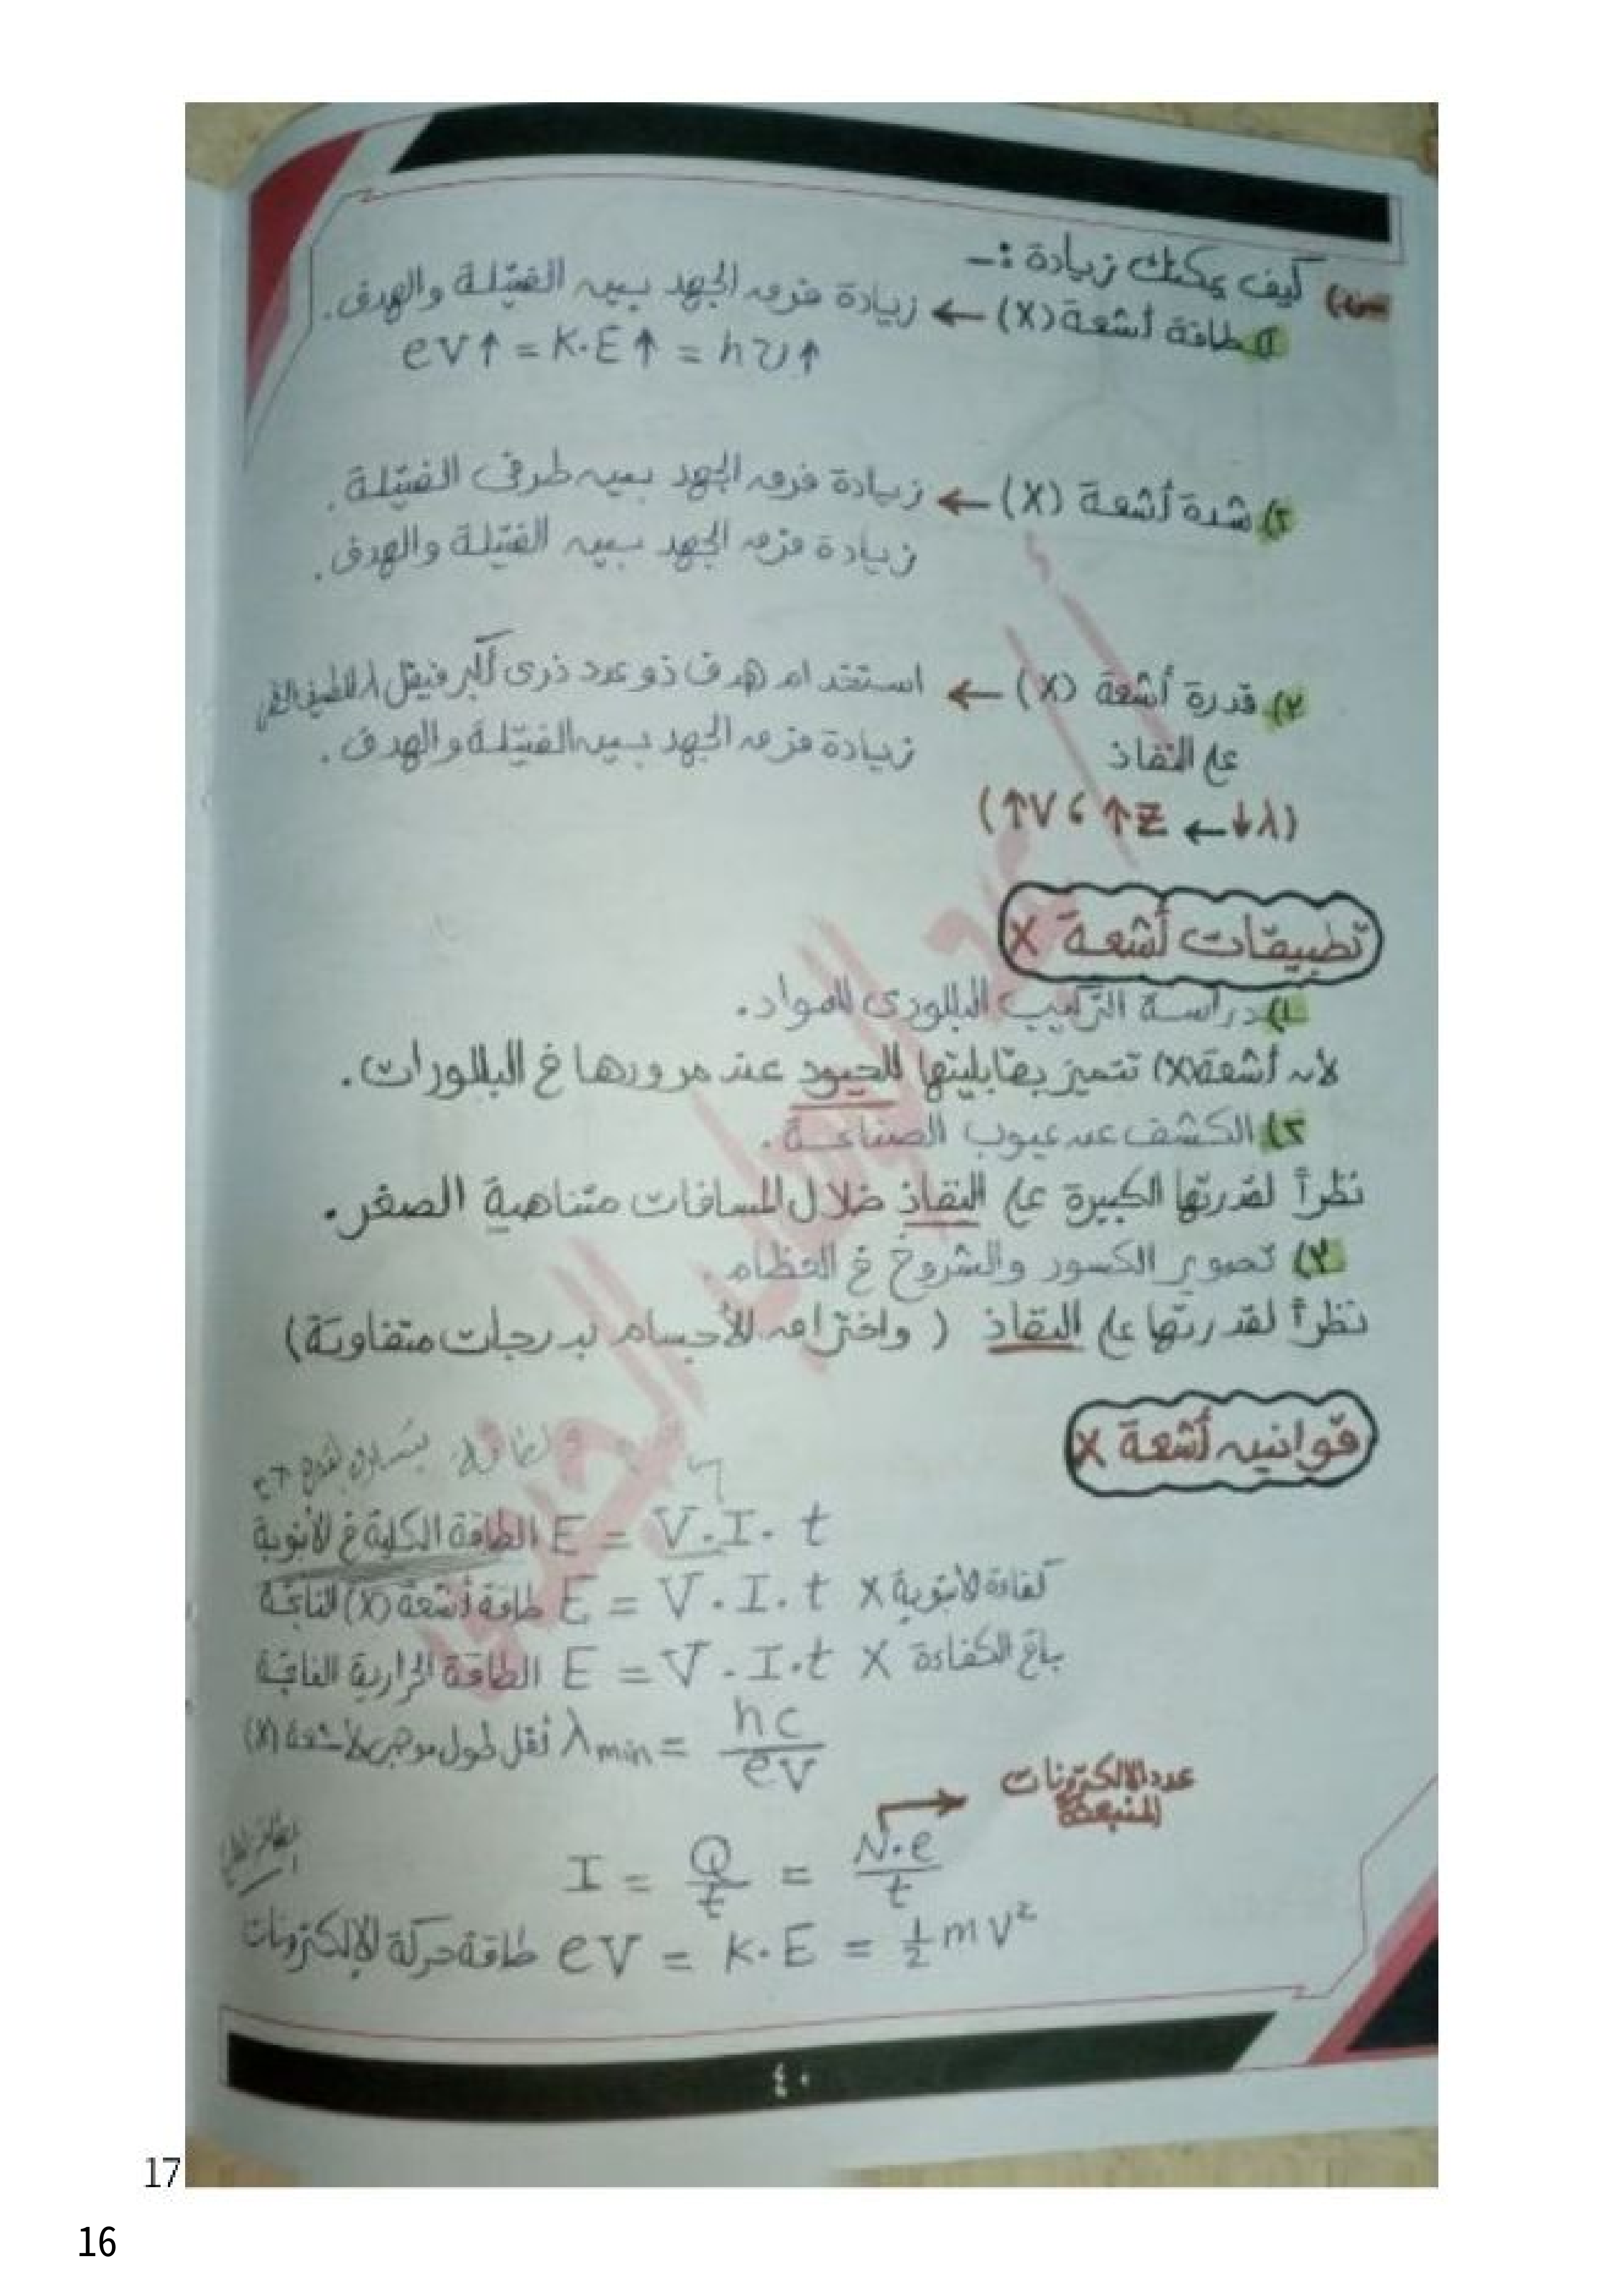 س) كيف يمكنك زيادة :-
١) طاقة أشعة (X) ← زيادة فرق الجهد بين الفتيلة والهدف.
eV↑ = K.E↑ = hυ↑
٢) شدة أشعة (X) ← زيادة فرق الجهد بين طرفى الفتيلة.
زيادة فرق الجهد بين الفتيلة والهدف.
٣) قدرة أشعة (X) ← استخدام هدف ذو عدد ذرى أكبر فيقل λ للطيف
على النفاذ زيادة فرق الجهد بين الفتيلة والهدف.
(λ↓ ← Z↑ ، V↑)
تطبيقات أشعة X
١) دراسة التركيب البللورى للمواد.
لأن أشعة (X) تتميز بقابليتها للحيود عند مرورها فى البللورات.
٢) الكشف عن عيوب الصناعة.
نظراً لقدرتها الكبيرة على النفاذ خلال المسافات متناهية الصغر.
٣) تصوير الكسور والشروخ فى العظام.
نظراً لقدرتها على النفاذ (واختراق الأجسام بدرجات متفاوتة)
قوانين أشعة X
الطاقة الكلية فى الأنبوبة E = V.I.t
طاقة أشعة (X) الناتجة E = V.I.t X كفاءة الأنبوبة
الطاقة الحرارية الناتجة E = V.I.t X باقى الكفاءة
أقل طول موجى لأشعة (X) λmin = hc/eV
عدد الالكترونات
المنبعثة
I = Q/t = N.e/t
طاقة حركة الإلكترونات eV = K.E = ½mv²
٤٠
17
16